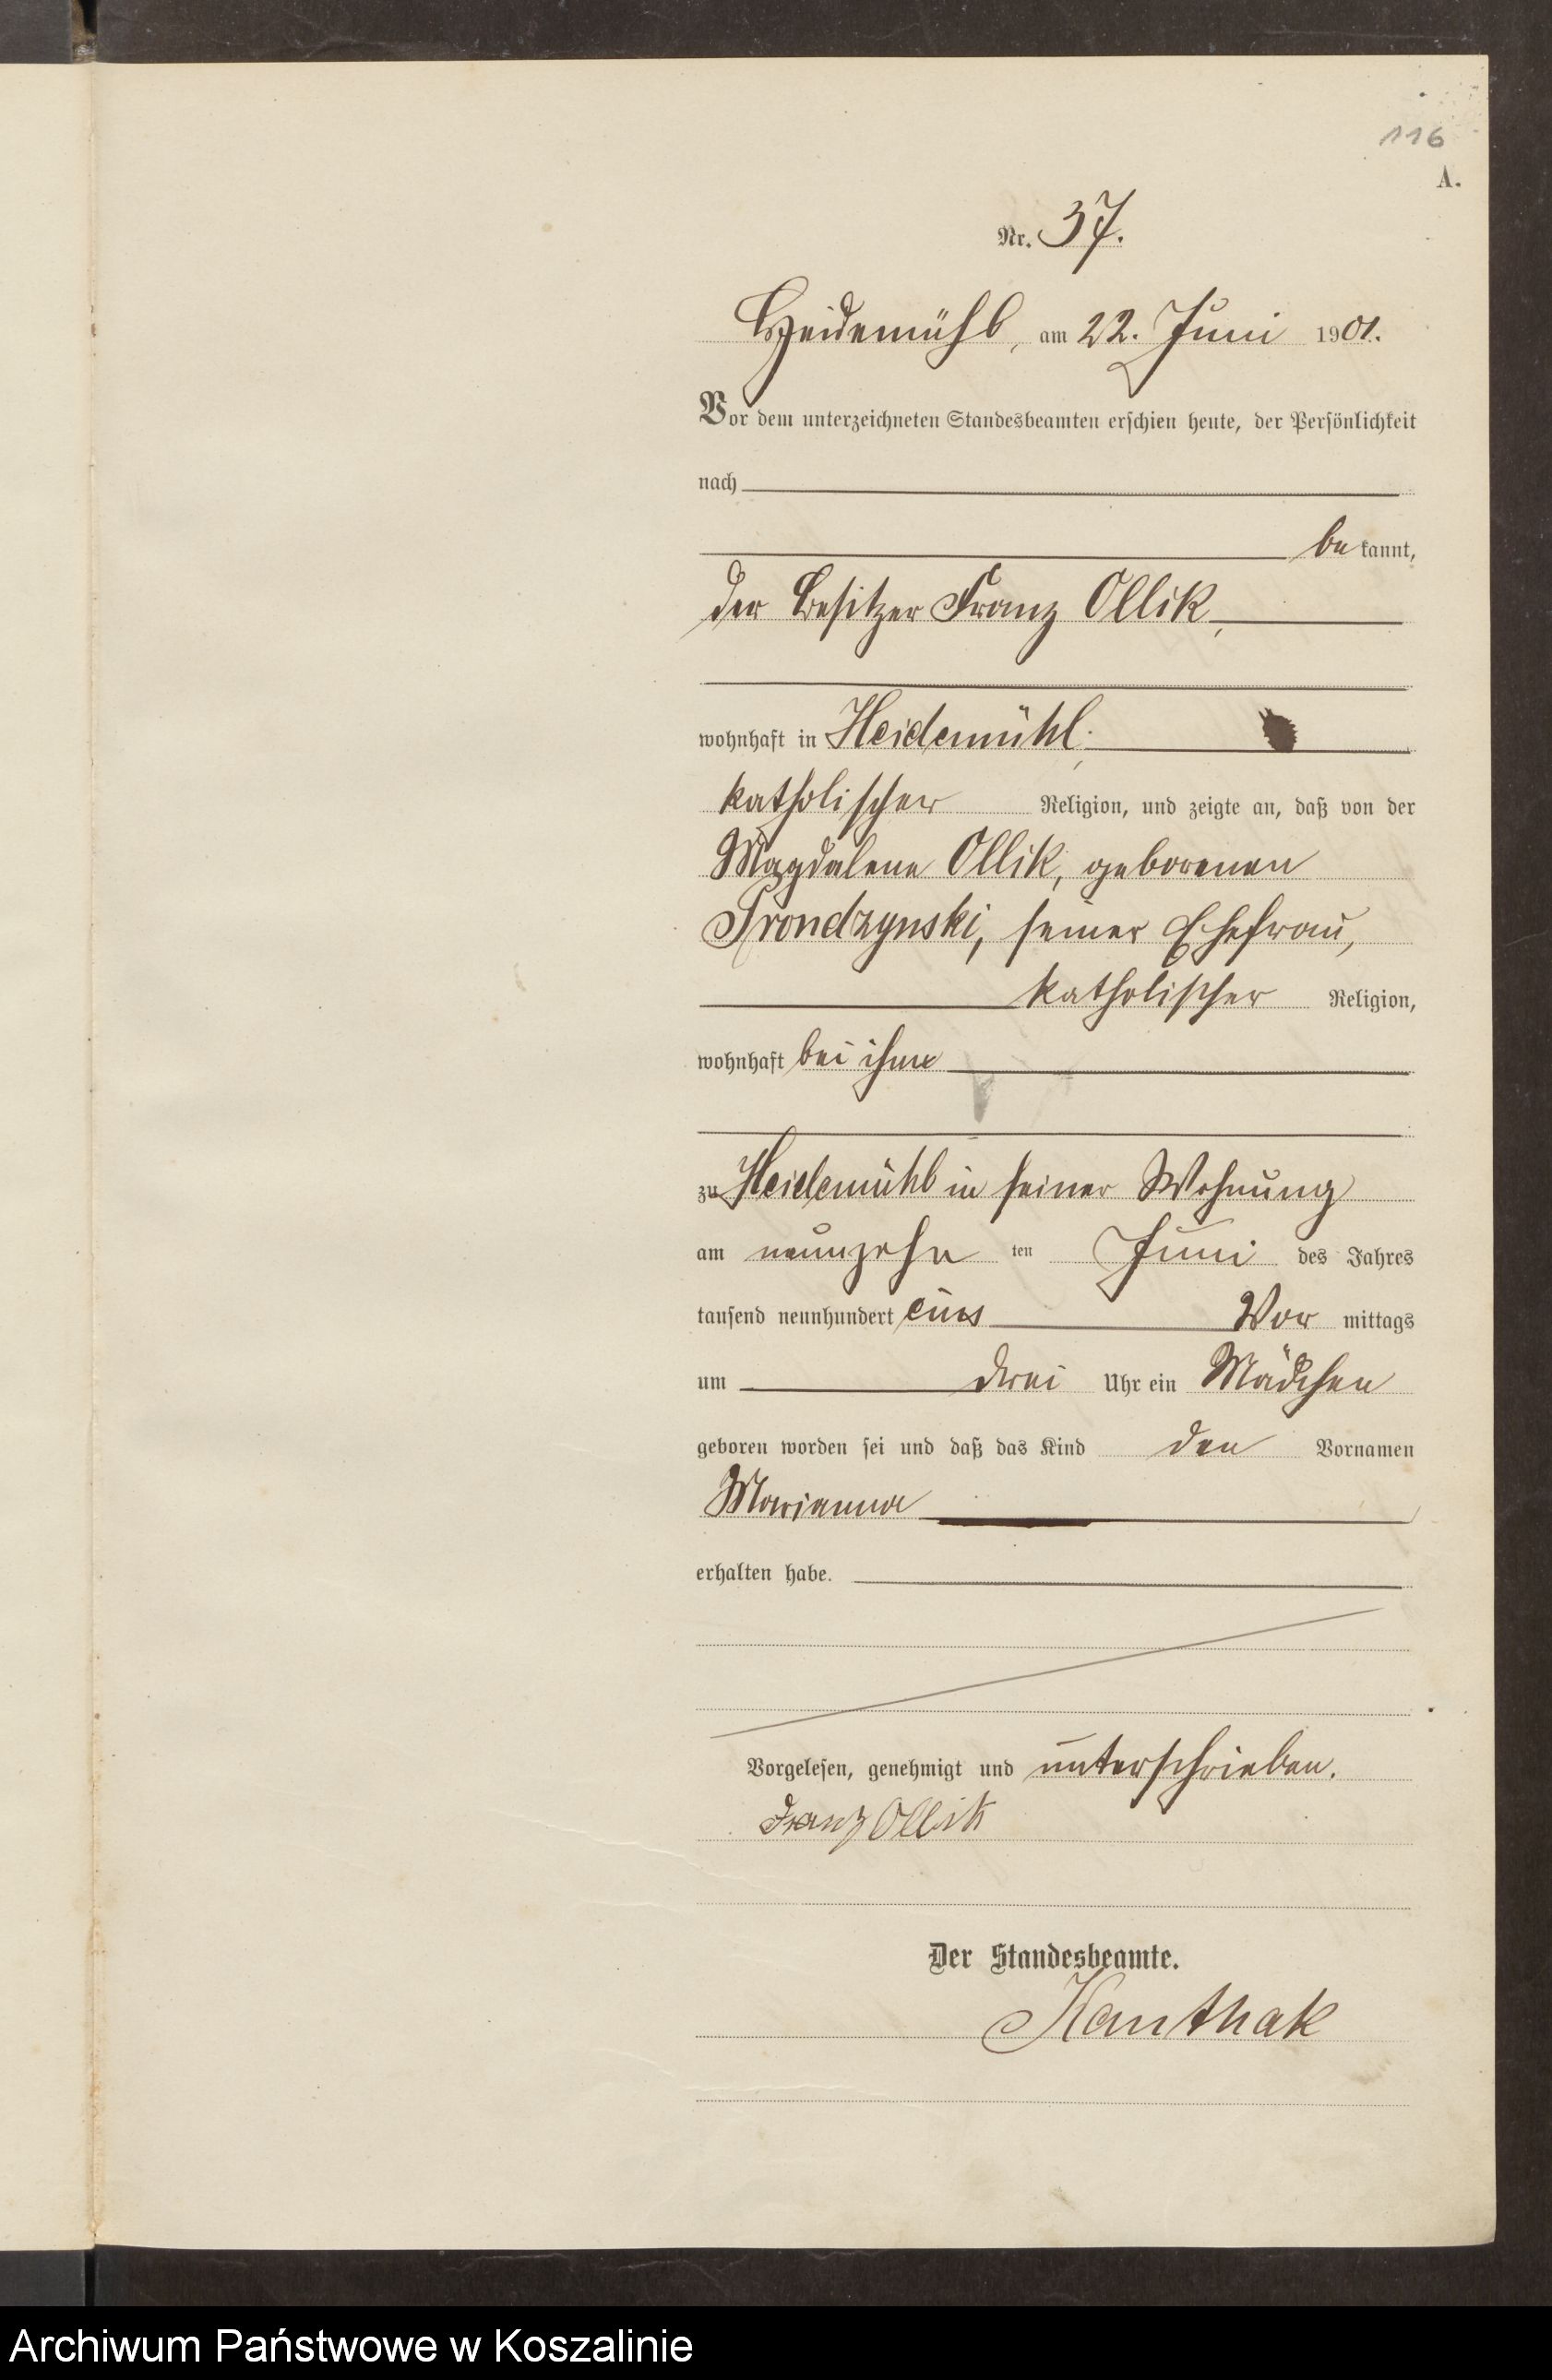 116
A.
Nr. 37.
Heidemühl, am 22. Juni 1901.
Vor dem unterzeichneten Standesbeamten erschien heute, der Persönlichkeit
nach
be kannt,
der Besitzer Franz Ollik,
wohnhaft in Heidemühl,
katholischer Religion, und zeigte an, daß von der
Magdalene Ollik, geborenen
Trondzynski, seiner Ehefrau,
katholischer Religion,
wohnhaft bei ihm
zu Heidemühl in seiner Wohnung
am neunzehn ten Juni des Jahres
tausend neunhundert eins Vor mittags
um drei Uhr ein Mädchen
geboren worden sei und daß das Kind den Vornamen
Marianna
erhalten habe.
Vorgelesen, genehmigt und unterschrieben.
Franz Ollik
Der Standesbeamte.
Kanthak
Archiwum Państwowe w Koszalinie